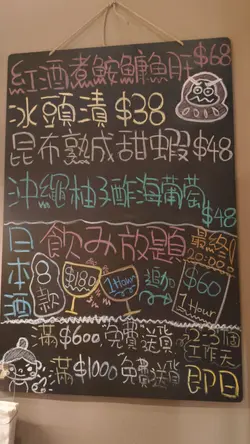 紅酒煮鮟鱇魚肝 $68
冰頭漬 $38
昆布熟成甜蝦 $48
沖繩柚子酢海葡萄 $48
日本酒 飲み放題 最終!
20:00
8款 $180 1 Hour 追加 $60 1 Hour
滿 $600 免費送貨 2-3個工作天
滿 $1000 免費送貨 即日